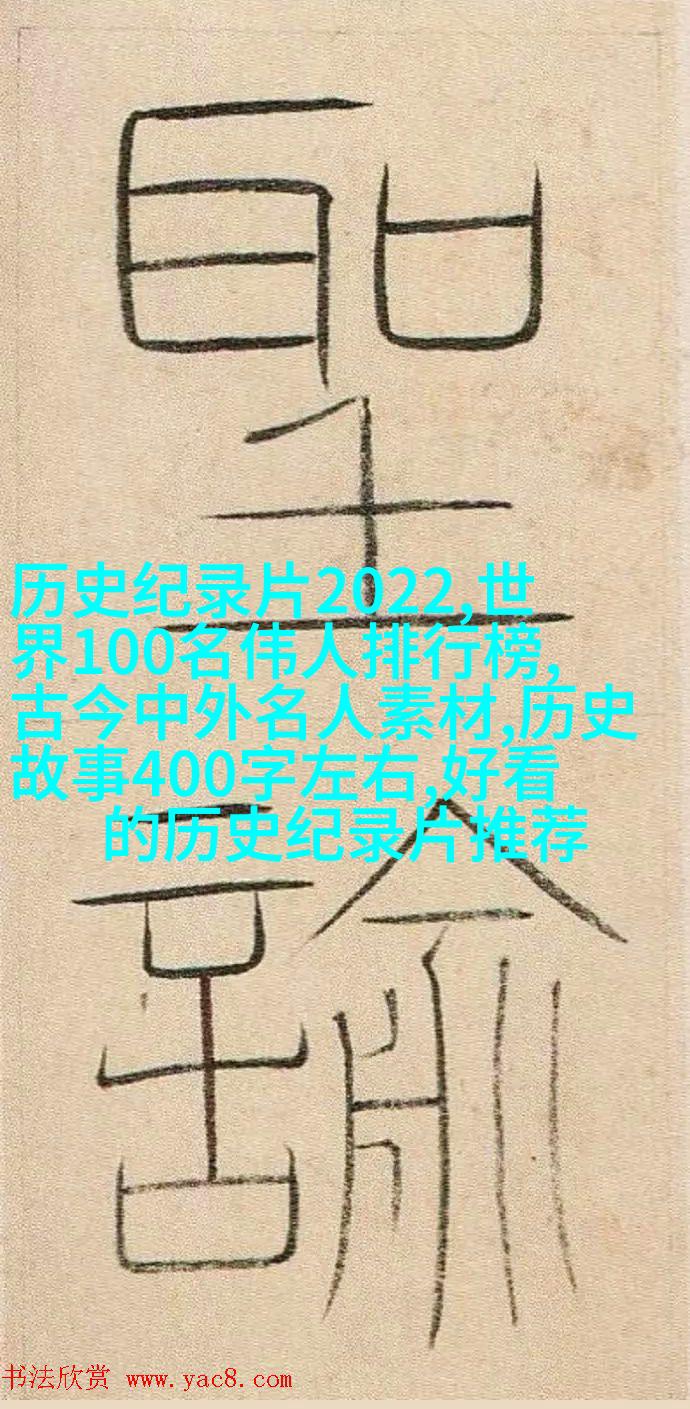 聖
諭
历史纪录片2022,世
界100名伟人排行榜,
古今中外名人素材,历史
故事400字左右,好看
的历史纪录片推荐
书法欣赏 www.yac8.com